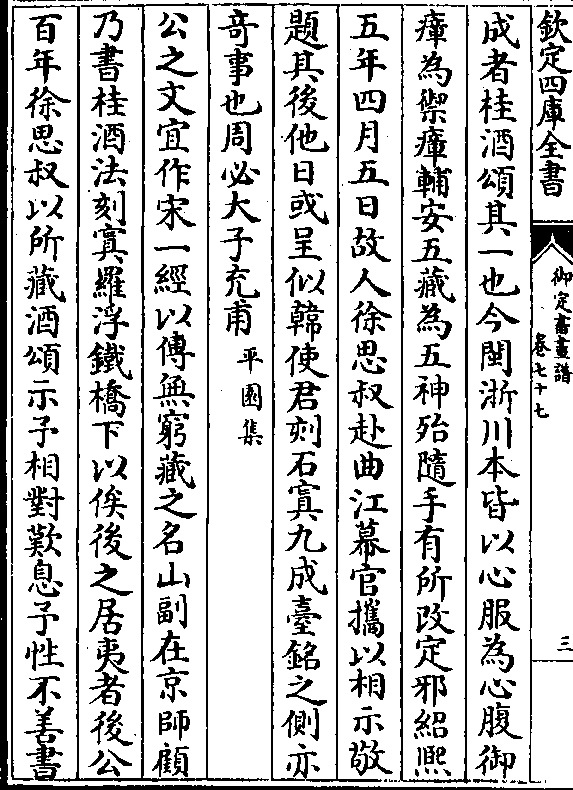 欽定四庫全書
御定書畫譜
卷七十七
三
成者桂酒頌其一也今閩浙川本皆以心服為心腹御
瘴為禦瘴輔安五藏為五神殆隨手有所改定邪紹熙
五年四月五日故人徐思叔赴曲江幕官攜以相示敬
題其後他日或呈似韓使君刻石寘九成臺銘之側亦
竒事也周必大子充甫 平園集
公之文宜作宋一經以傳無窮藏之名山副在京師顧
乃書桂酒法刻寘羅浮鐵橋下以俟後之居夷者後公
百年徐思叔以所藏酒頌示予相對歎息予性不善書